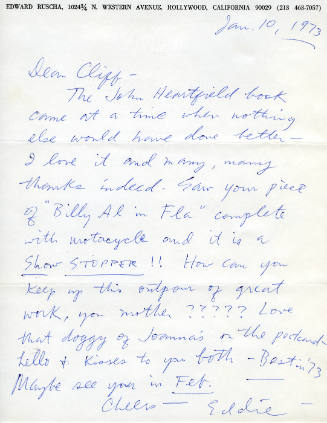 EDWARD RUSCHA, 1024¾ N. WESTERN AVENUE, HOLLYWOOD, CALIFORNIA 90029 (213 468-7057)
Jan. 10, 1973
Dear Cliff –
The John Heartfield book
came at a time when nothing
else would have done better –
I love it and many, many
thanks indeed. Saw your piece
of "Billy Al in Fla" complete
with motocycle and it is a
Show STOPPER !! How can you
keep up this outpour of great
work, you mother ????? Love
that doggy of Joanna's on the postcard –
hello & kisses to you both – Best in '73
Maybe see you in Feb.
Cheers – Eddie –